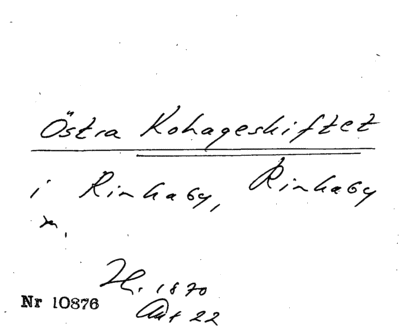 Östra Kohageskiftet
i Rinkaby, Rinkaby
1870
Nr 10876
22